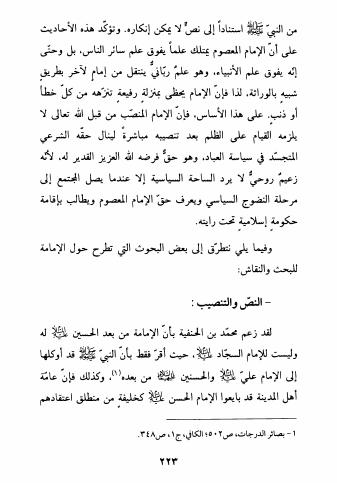 من النبيّ ﷺ استناداً إلى نصٍّ لا يمكن إنكاره. وتؤكّد هذه الأحاديث
على أنّ الإمام المعصوم يمتلك علماً يفوق علم سائر الناس، بل وحتّى
إنّه يفوق علم الأنبياء، وهو علمٌ ربّانيٌّ ينتقل من إمامٍ لآخر بطريقٍ
شبيهٍ بالوراثة، لذا فإنّ الإمام يحظى بمنزلةٍ رفيعةٍ تنزّهه من كلّ خطأ
أو ذنبٍ. على هذا الأساس، فإنّ الإمام المنصّب من قبل الله تعالى لا
يلزمه القيام على الظلم بعد تنصيبه مباشرةً لينال حقّه الشرعي
المتجسّد في سياسة العباد، وهو حقٌّ فرضه الله العزيز القدير له، لأنّه
زعيمٌ روحيٌّ لا يرد الساحة السياسية إلا عندما يصل المجتمع إلى
مرحلة النضوج السياسي ويعرف حقّ الإمام المعصوم ويطالب بإقامة
حكومةٍ إسلاميةٍ تحت رايته.
وفيما يلي نتطرّق إلى بعض البحوث التي تطرح حول الإمامة
للبحث والنقاش:
- النصّ والتنصيب :
لقد زعم محمّد بن الحنفية بأنّ الإمامة من بعد الحسين عليه السلام له
وليست للإمام السجّاد عليه السلام، حيث أقرّ فقط بأنّ النبيّ ﷺ قد أوكلها
إلى الإمام عليّ عليه السلام والحسنين عليهما السلام من بعده(١)، وكذلك فإنّ عامّة
أهل المدينة قد بايعوا الإمام الحسن عليه السلام كخليفةٍ من منطلق اعتقادهم
١- بصائر الدرجات، ص٥٠٢؛ الكافي، ج١، ص٣٤٨.
٢٢٣